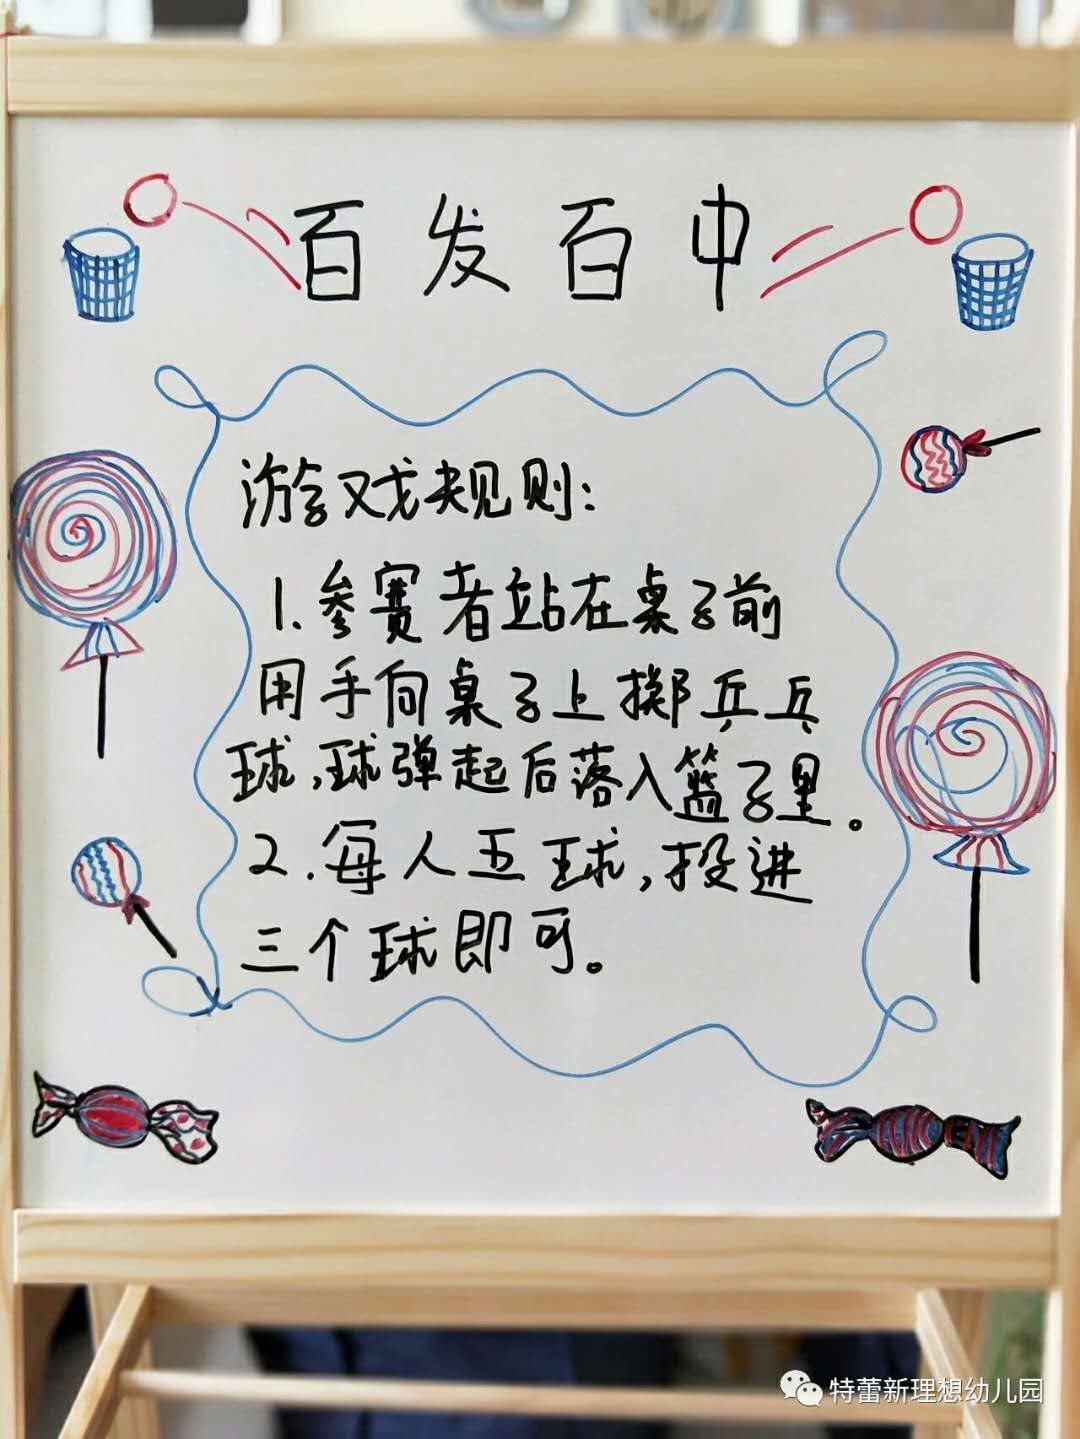 百发百中
游戏规则:
1.参赛者站在桌子前
用手向桌子上掷乒乓
球,球弹起后落入篮子里。
2.每人五球,投进
三个球即可。
特蕾新理想幼儿园